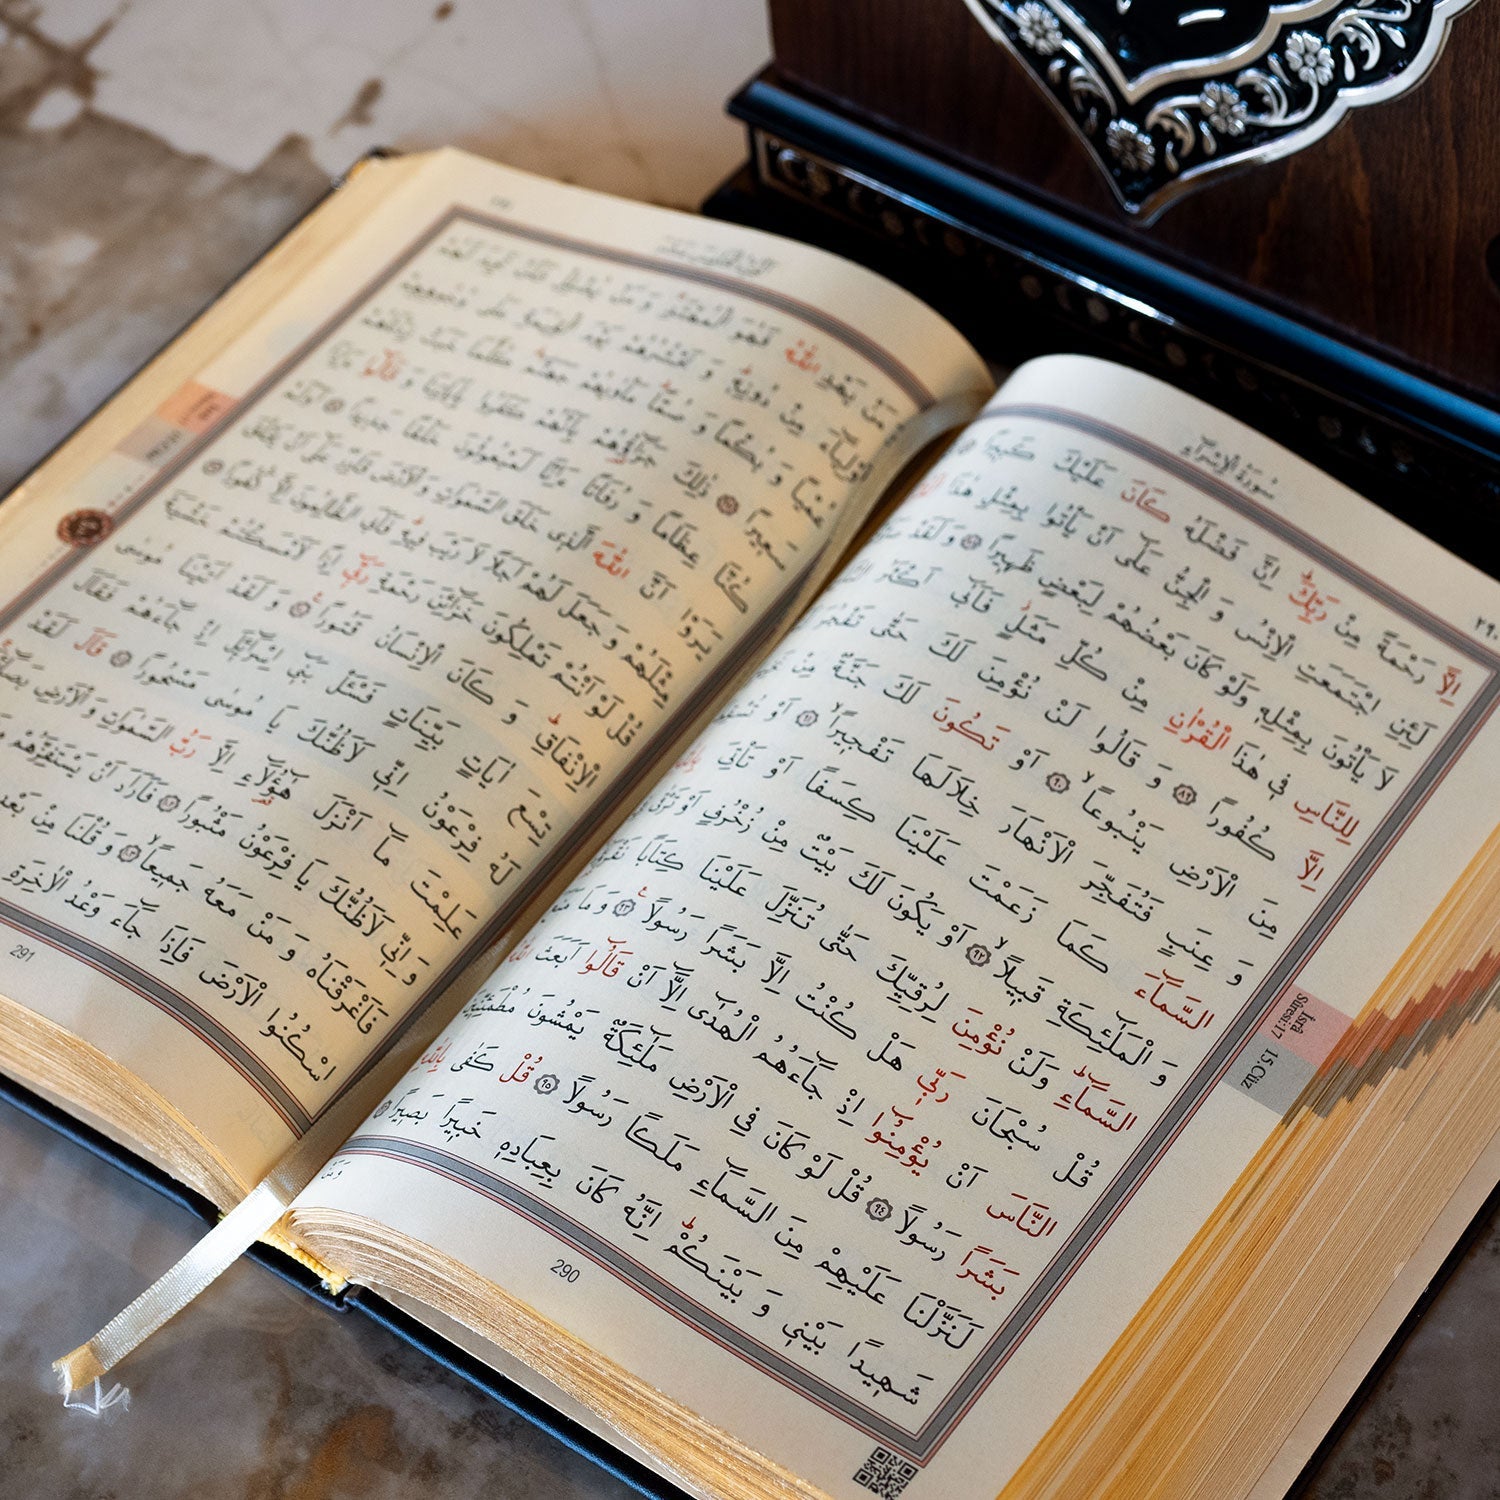 سُورَةُ الْاِسْرَاءِ
٢٩٠
اِلَّا رَحْمَةً مِنْ رَبِّكَۜ اِنَّ فَضْلَهُ كَانَ عَلَيْكَ كَبِيرًا
لَئِنِ اجْتَمَعَتِ الْاِنْسُ وَ الْجِنُّ عَلٰٓى اَنْ يَأْتُوا بِمِثْلِ هٰذَا
لَا يَأْتُونَ بِمِثْلِهِ وَلَوْ كَانَ بَعْضُهُمْ لِبَعْضٍ ظَهِيرًا ٨٨ وَلَقَدْ
لِلنَّاسِ فِي هٰذَا الْقُرْاٰنِ مِنْ كُلِّ مَثَلٍۘ فَاَبٰٓى اَكْثَرُ
اِلَّا كُفُورًا ٨٩ وَ قَالُوا لَنْ نُؤْمِنَ لَكَ حَتّٰى تَفْجُرَ
مِنَ الْاَرْضِ يَنْبُوعًاۙ ٩٠ اَوْ تَكُونَ لَكَ جَنَّةٌ مِنْ
وَ عِنَبٍ فَتُفَجِّرَ الْاَنْهَارَ خِلَالَهَا تَفْجِيرًاۙ ٩١ اَوْ
السَّمَٓاءَ كَمَا زَعَمْتَ عَلَيْنَا كِسَفًا اَوْ تَأْتِيَ
وَ الْمَلٰٓئِكَةِ قَبِيلًاۙ ٩٢ اَوْ يَكُونَ لَكَ بَيْتٌ مِنْ زُخْرُفٍ اَوْ
السَّمَٓاءِۜ وَلَنْ نُؤْمِنَ لِرُقِيِّكَ حَتّٰى تُنَزِّلَ عَلَيْنَا كِتَابًا
قُلْ سُبْحَانَ رَبِّي هَلْ كُنْتُ اِلَّا بَشَرًا رَسُولًا ٩٣ وَ مَا
النَّاسَ اَنْ يُؤْمِنُٓوا اِذْ جَٓاءَهُمُ الْهُدٰٓى اِلَّٓا اَنْ قَالُٓوا اَبَعَثَ
بَشَرًا رَسُولًا ٩٤ قُلْ لَوْ كَانَ فِي الْاَرْضِ مَلٰٓئِكَةٌ يَمْشُونَ مُطْمَئِنِّينَ
لَنَزَّلْنَا عَلَيْهِمْ مِنَ السَّمَٓاءِ مَلَكًا رَسُولًا ٩٥ قُلْ كَفٰى بِاللّٰهِ
شَهِيدًا بَيْنِي وَ بَيْنَكُمْۜ اِنَّهُ كَانَ بِعِبَادِهِ خَبِيرًا بَصِيرًا
İsrâ
Sûresi:17
15.Cüz
290
مَنْ يَهْدِ اللّٰهُ فَهُوَ الْمُهْتَدِ وَ مَنْ يُضْلِلْ فَلَنْ تَجِدَ لَهُمْ
اَوْلِيَٓاءَ مِنْ دُونِهِ وَ نَحْشُرُهُمْ يَوْمَ الْقِيٰمَةِ عَلٰى وُجُوهِهِمْ
عُمْيًا وَ بُكْمًا وَ صُمًّا مَأْوٰيهُمْ جَهَنَّمُ كُلَّمَا خَبَتْ زِدْنَاهُمْ
سَعِيرًا ذٰلِكَ جَزَٓاؤُهُمْ بِاَنَّهُمْ كَفَرُوا بِاٰيَاتِنَا وَ قَالُٓوا ءَاِذَا
كُنَّا عِظَامًا وَ رُفَاتًا ءَاِنَّا لَمَبْعُوثُونَ خَلْقًا جَدِيدًا اَوَلَمْ
يَرَوْا اَنَّ اللّٰهَ الَّذِي خَلَقَ السَّمٰوَاتِ وَ الْاَرْضَ قَادِرٌ عَلٰٓى اَنْ يَخْلُقَ
مِثْلَهُمْ وَ جَعَلَ لَهُمْ اَجَلًا لَا رَيْبَ فِيهِ فَاَبَى الظَّالِمُونَ اِلَّا كُفُورًا
قُلْ لَوْ اَنْتُمْ تَمْلِكُونَ خَزَٓائِنَ رَحْمَةِ رَبِّٓي اِذًا لَاَمْسَكْتُمْ خَشْيَةَ
الْاِنْفَاقِۜ وَ كَانَ الْاِنْسَانُ قَتُورًا وَ لَقَدْ اٰتَيْنَا مُوسٰى
تِسْعَ اٰيَاتٍ بَيِّنَاتٍ فَسْـَٔلْ بَنِٓي اِسْرَٓائِلَ اِذْ جَٓاءَهُمْ فَقَالَ
لَهُ فِرْعَوْنُ اِنِّي لَاَظُنُّكَ يَا مُوسٰى مَسْحُورًا قَالَ لَقَدْ
عَلِمْتَ مَٓا اَنْزَلَ هٰٓؤُلَٓاءِ اِلَّا رَبُّ السَّمٰوَاتِ وَ الْاَرْضِ
وَ اِنِّي لَاَظُنُّكَ يَا فِرْعَوْنُ مَثْبُورًا فَاَرَادَ اَنْ يَسْتَفِزَّهُمْ
فَاَغْرَقْنَاهُ وَ مَنْ مَعَهُ جَمِيعًاۙ وَ قُلْنَا مِنْ بَعْدِهِ
اسْكُنُوا الْاَرْضَ فَاِذَا جَٓاءَ وَعْدُ الْاٰخِرَةِ
291